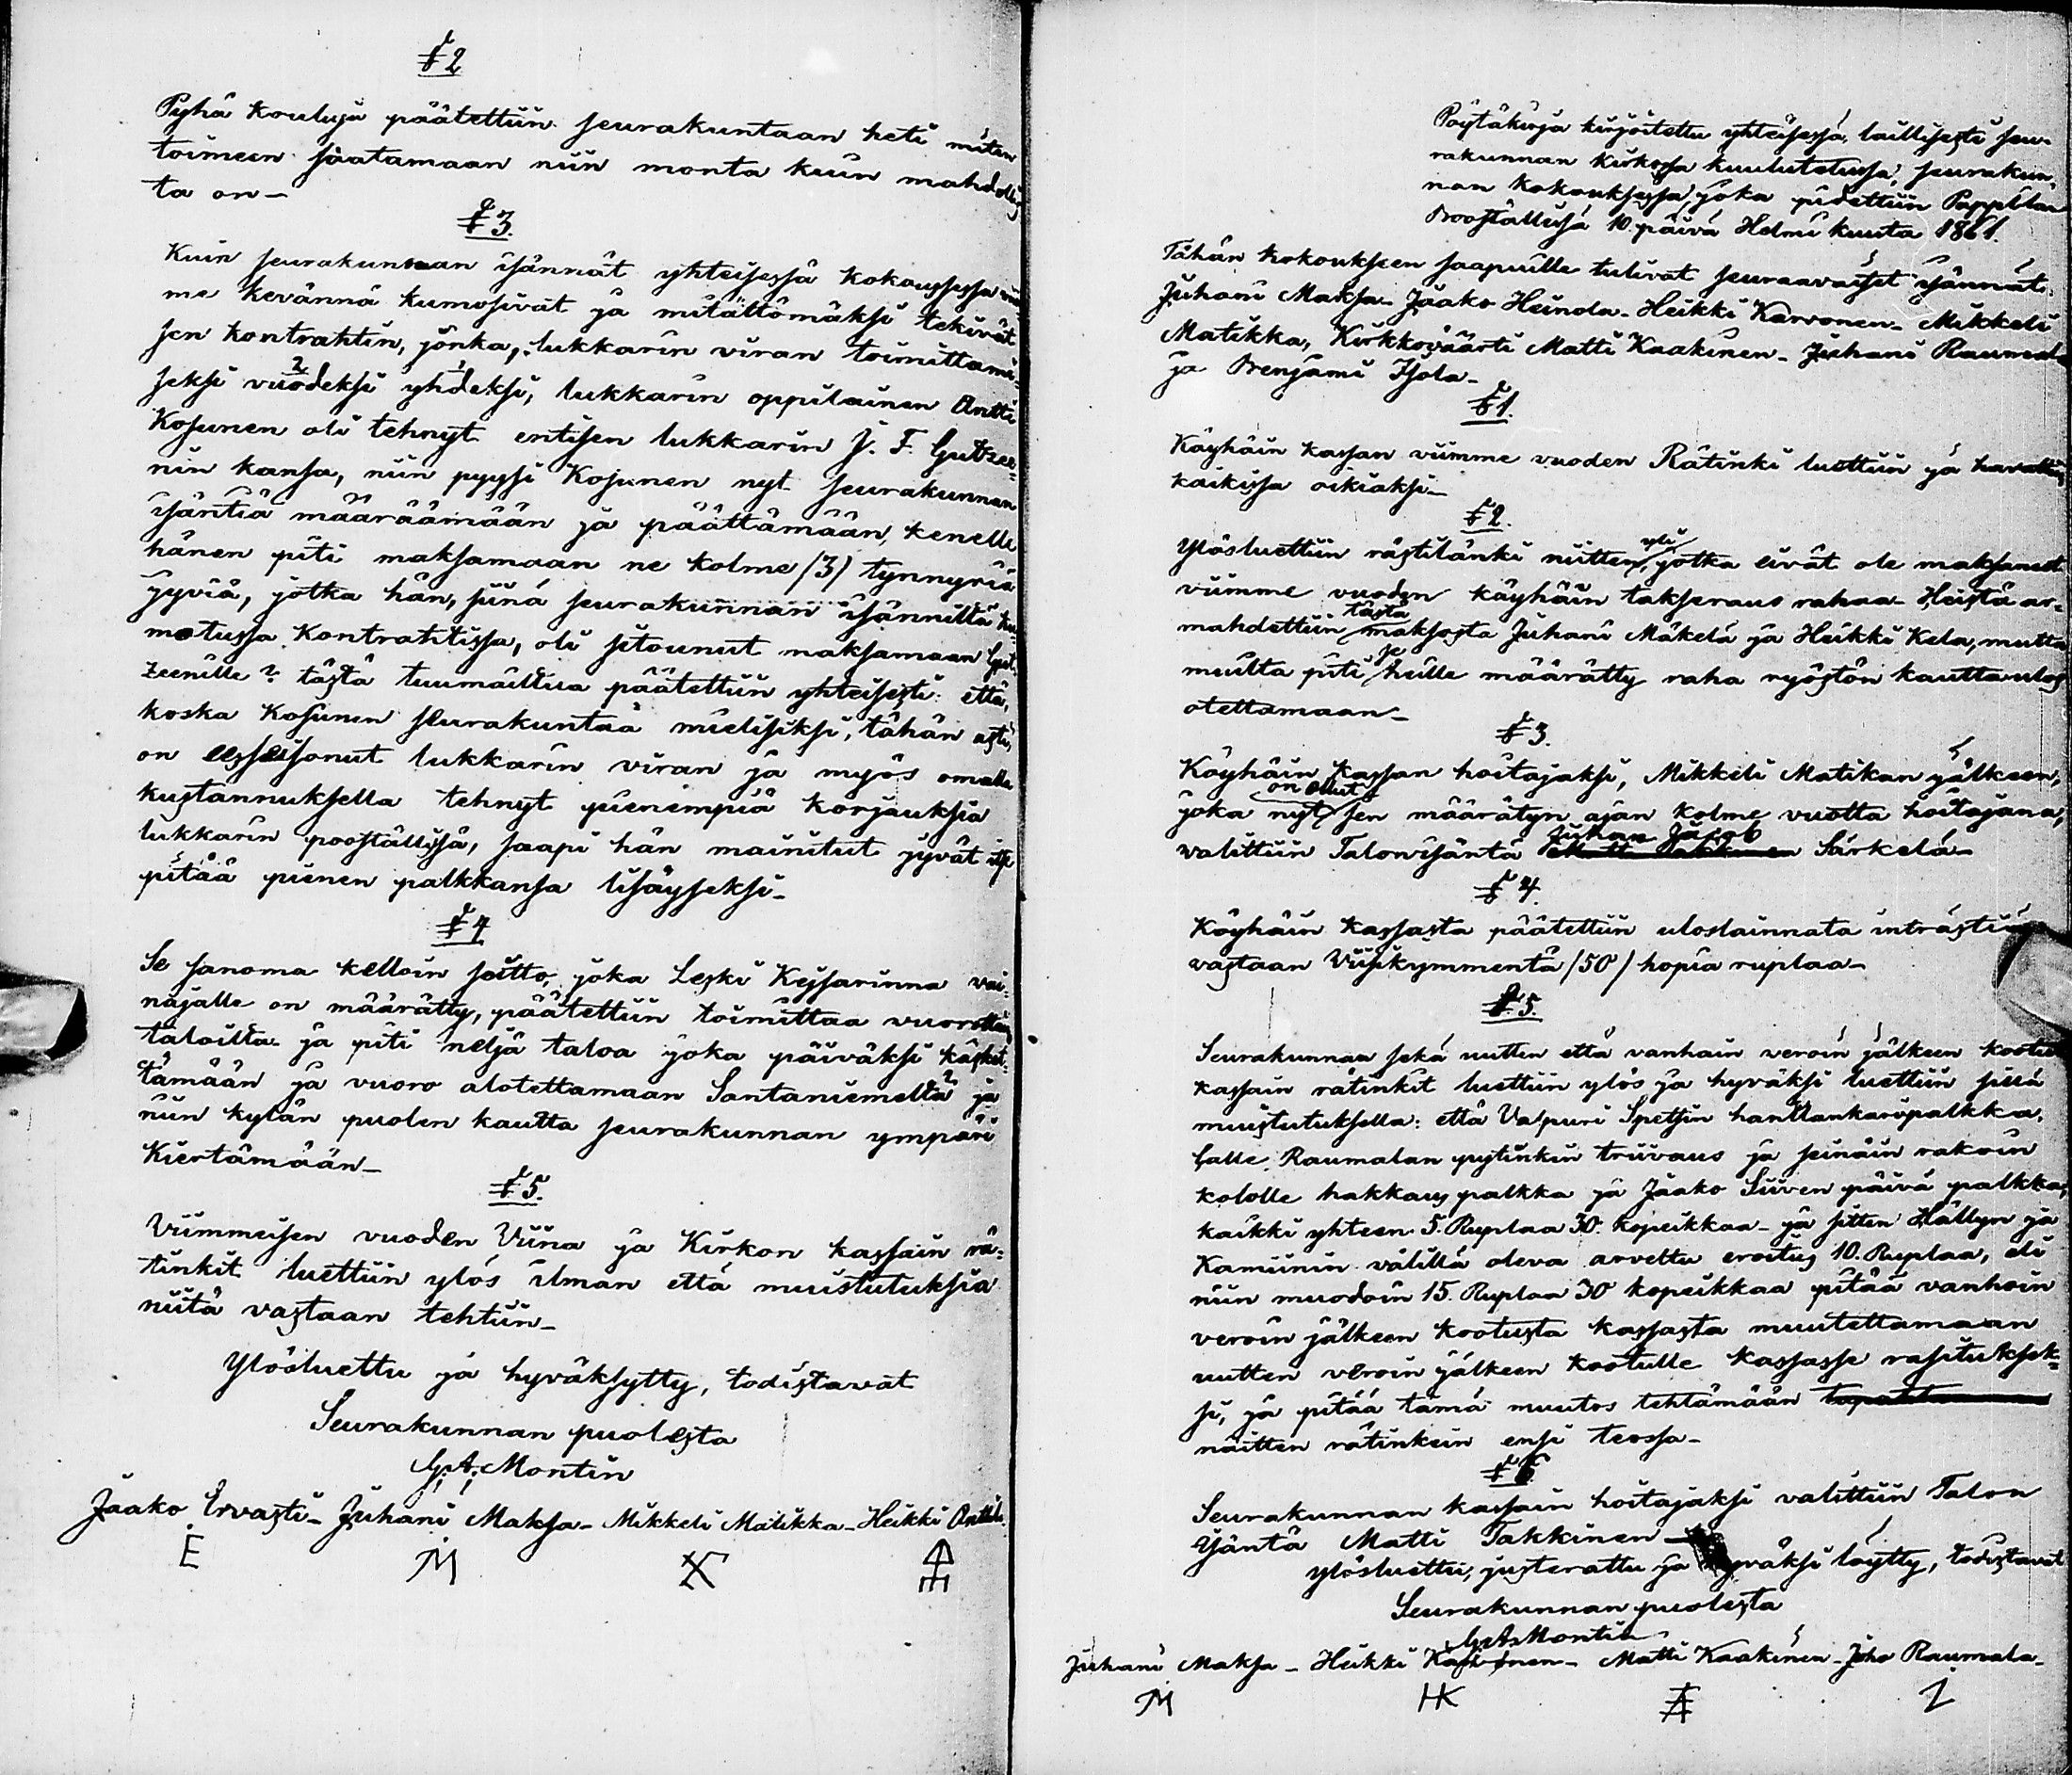 § 2
Pyhä kouluja päätettiin seurakuntaan heti miten
toimeen saatamaan niin monta kuin mahdollis
ta on -
§ 3.
Kuin seurakunnan isännät yhteisessä kokouksessa vii
me kevännä kumosivat ja mitättömäksi tekivät
sen kontrahtin, jonka, lukkarin viran toimittami-
seksi vuodeksi yhdeksi, lukkarin oppilainen Antti
Kosunen oli tehnyt entisen lukkarin J. F. Gutzee-
nin kansa, niin pyysi Kosunen nyt seurakunnan
isäntiä määräämään ja päättämään, kenelle
hänen piti maksamaan ne kolme /3/ tynnyriä
jyviä, jotka hän, siinä seurakunnan isänniltä ku
motussa kontrahtissa, oli sitounut maksamaan Gut-
zeenille? tästä tuumailtua päätettiin yhteisesti: että,
koska Kosunen seurakuntaa mielisiksi, tähän asti,
on esseisonut lukkarin viran ja myös omalla
kustannuksella tehnyt pienempiä korjauksia
lukkarin pooställissä, saapi hän mainitut jyvät itse
pitää pienen palkkansa lisäykseksi -
§ 4
Se sanoma kelloin soitto, joka Leski Keisarinna vai-
najalle on määrätty, päätettiin toimittaa vuorotten
taloilta ja piti neljä taloa joka päiväksi käsket-
tämään ja vuoro alotettamaan Santaniemeltä ja
niin kylän puolen kautta seurakunnan ympäri
kiertämään -
§ 5.
Viimmeisen vuoden Viina ja Kirkon kassain rä-
tinkit luettiin ylös ilman että muistutuksia
niitä vastaan tehtiin -
Ylösluettu ja hyväksytty, todistavat
Seurakunnan puolesta
G. A. Montin
Jaako Ervasti - Juhani Maksa - Mikkeli Matikka - Heikki Anttila
E M X
Pöytäkirja kirjoitettu yhteisessä, laillisesti seu-
rakunnan kirkossa kuulutetussa, seurakun-
nan kokouksessa, joka pidettiin Pappilan
Booställissä 10 päivä Helmi kuuta 1861.
Tähän kokoukseen saapuille tulivat seuraavaiset isännät:
Juhani Maksa - Jaako Heinola - Heikki Karvonen - Mikkeli
Matikka, Kirkkoväärti Matti Kaakinen - Juhani Raumala
ja Benjami Isola -
§ 1.
Käyhäin kassan viimme vuoden Rätinki luettiin ja havaittiin
kaikissa oikiaksi -
§ 2.
Ylösluettiin rästilänki niitten yli jotka eivät ole maksanet
viimme vuoden käyhäin takseraus rahaa - Heistä ar-
mahdettiin tästä maksosta Juhani Mäkelä ja Heikki Kela, mutta
muilta piti se heille määrätty raha ryöstön kautta ulos
otettamaan -
§ 3.
Köyhäin kassan hoitajaksi, Mikkeli Matikan jälkeen,
joka nyt on ollut sen määrätyn ajan kolme vuotta hoitajana,
valittiin Talonisäntä Juhan Jacob Särkelä -
§ 4.
Köyhäin kassasta päätettiin uloslainnata inträstiä
vastaan Viisikymmentä /50/ hopia ruplaa -
§ 5.
Seurakunnan sekä uutten että vanhain veroin jälkeen kootu
kassain rätinkit luettiin ylös ja hyväksi luettiin sillä
muistutuksella: että Valpuri Spetsin hantlankaripalkka,
Calle Raumalan pytinkin triivaus ja seinäin rakoin
kololle hakkaus palkka ja Jaako Siiven päivä palkka,
kaikki yhteen 5. Ruplaa 30. kopeikkaa - ja sitten Hällyn ja
Kamiinin välillä oleva arvettu eroitus 10. Ruplaa, eli
niin muodoin 15. Ruplaa 30 kopeikkaa pitää vanhoin
veroin jälkeen kootusta kassasta muutettamaan
uutten veroin jälkeen kootulle kassasse rasituksek-
si, ja pitää tämä muutos tehtämään
näitten rätinkein ensi teossa -
§ 6
Seurakunnan kassain hoitajaksi valittiin Talon
Isäntä Matti Takkinen -
ylösluettu, justerattu ja hyväksi löytty, todistavat
Seurakunnan puolesta
G. A. Montin
Juhani Maksa - Heikki Karvonen - Matti Kaakinen - Joho Raumala -
M HK